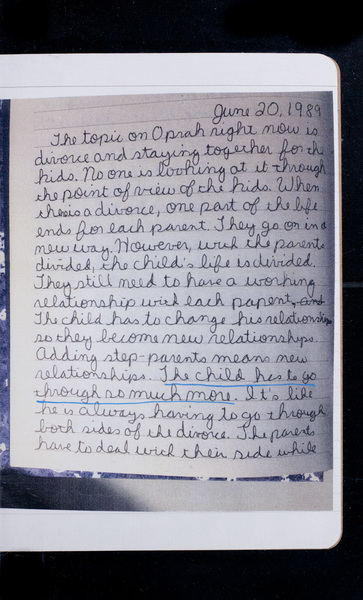 June 20, 1989
The topic on Oprah right now is
divorce and staying together for the
kids. No one is looking at it through
the point of view of the kids. When
theres a divorce, one part of the life
ends for each parent. They go on in a
new way. However, with the parents
divided, the child's life is divided.
They still need to have a working
relationship with each parent, and
The child has to change his relationships
so they become new relationships.
Adding step-parents means new
relationships. The child has to go
through so much more. It's like
he is always having to go through
both sides of the divorce. The parents
have to deal with their side while